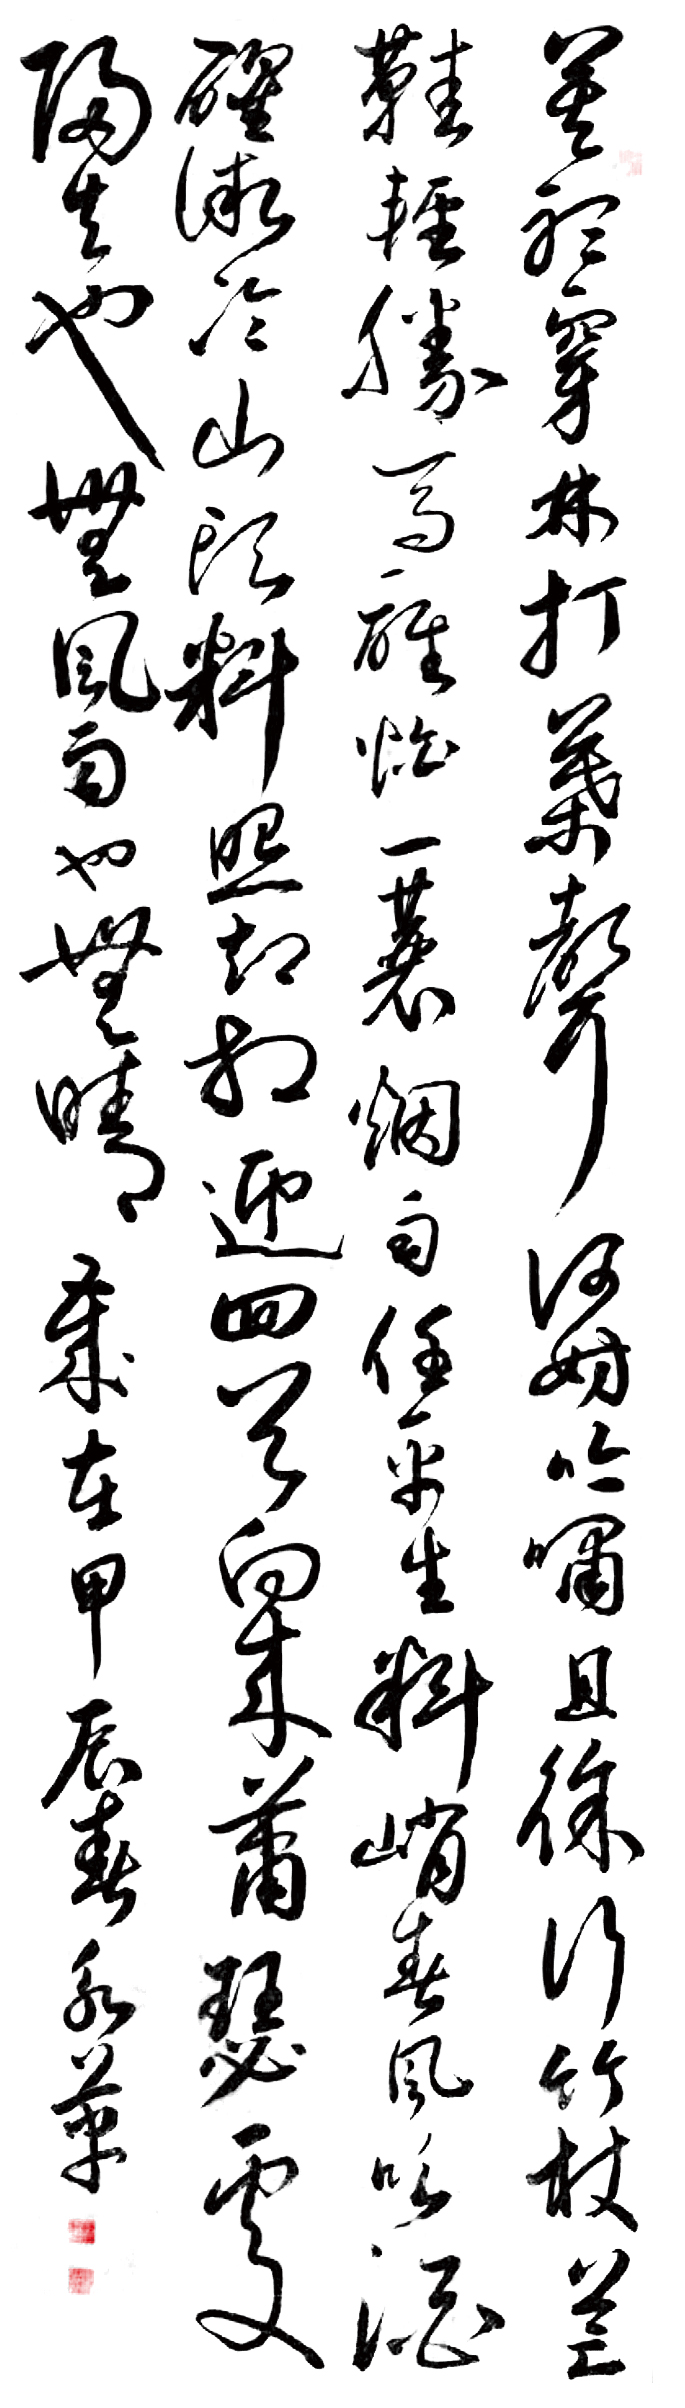 莫聽穿林打葉聲何妨吟嘯且徐行竹杖芒
鞋輕勝馬誰怕一蓑烟雨任平生料峭春風吹酒
醒微冷山頭斜照却相迎回首向來蕭瑟處
歸去也無風雨也無晴 歲在甲辰春永苹